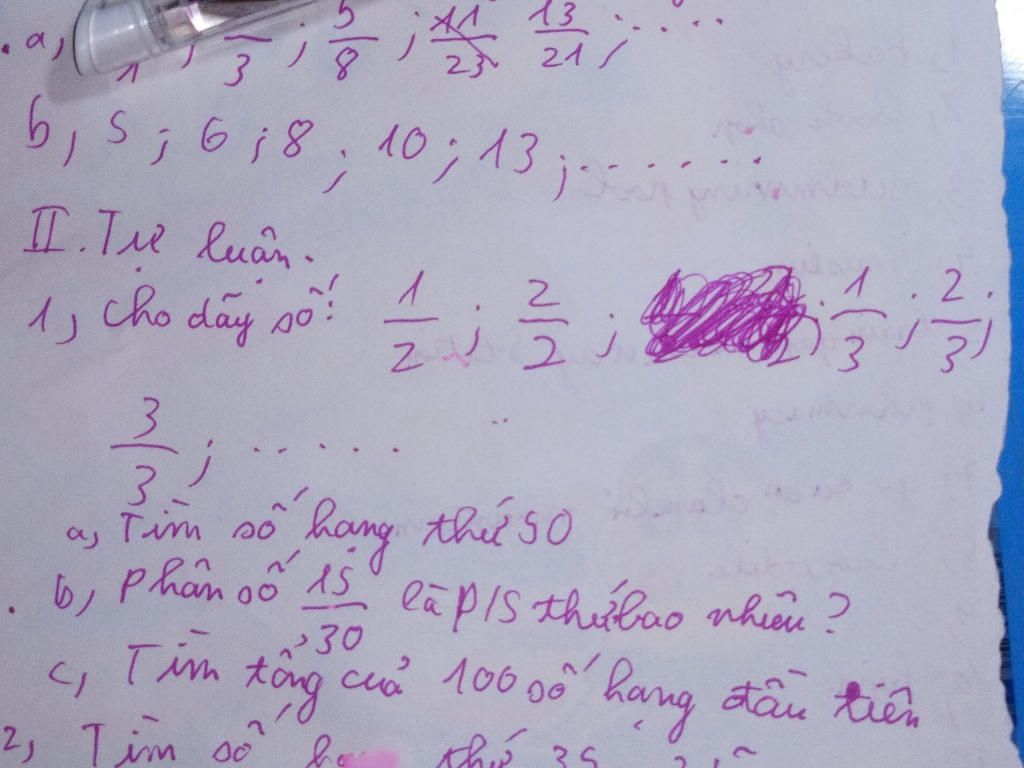 a, 1 ; /3 ; 5/8 ; 11/23 13/21 ; ....
b, 5 ; 6 ; 8 ; 10 ; 13 ; ......
II. Tự luận.
1, Cho dãy số: 1/2 ; 2/2 ; ; 1/3 ; 2/3 ;
3/3 ; .....
a, Tìm số hạng thứ 50
b, Phân số 15/30 là P/S thứ bao nhiêu?
c, Tìm tổng của 100 số hạng đầu tiên
2, Tìm số thứ 35